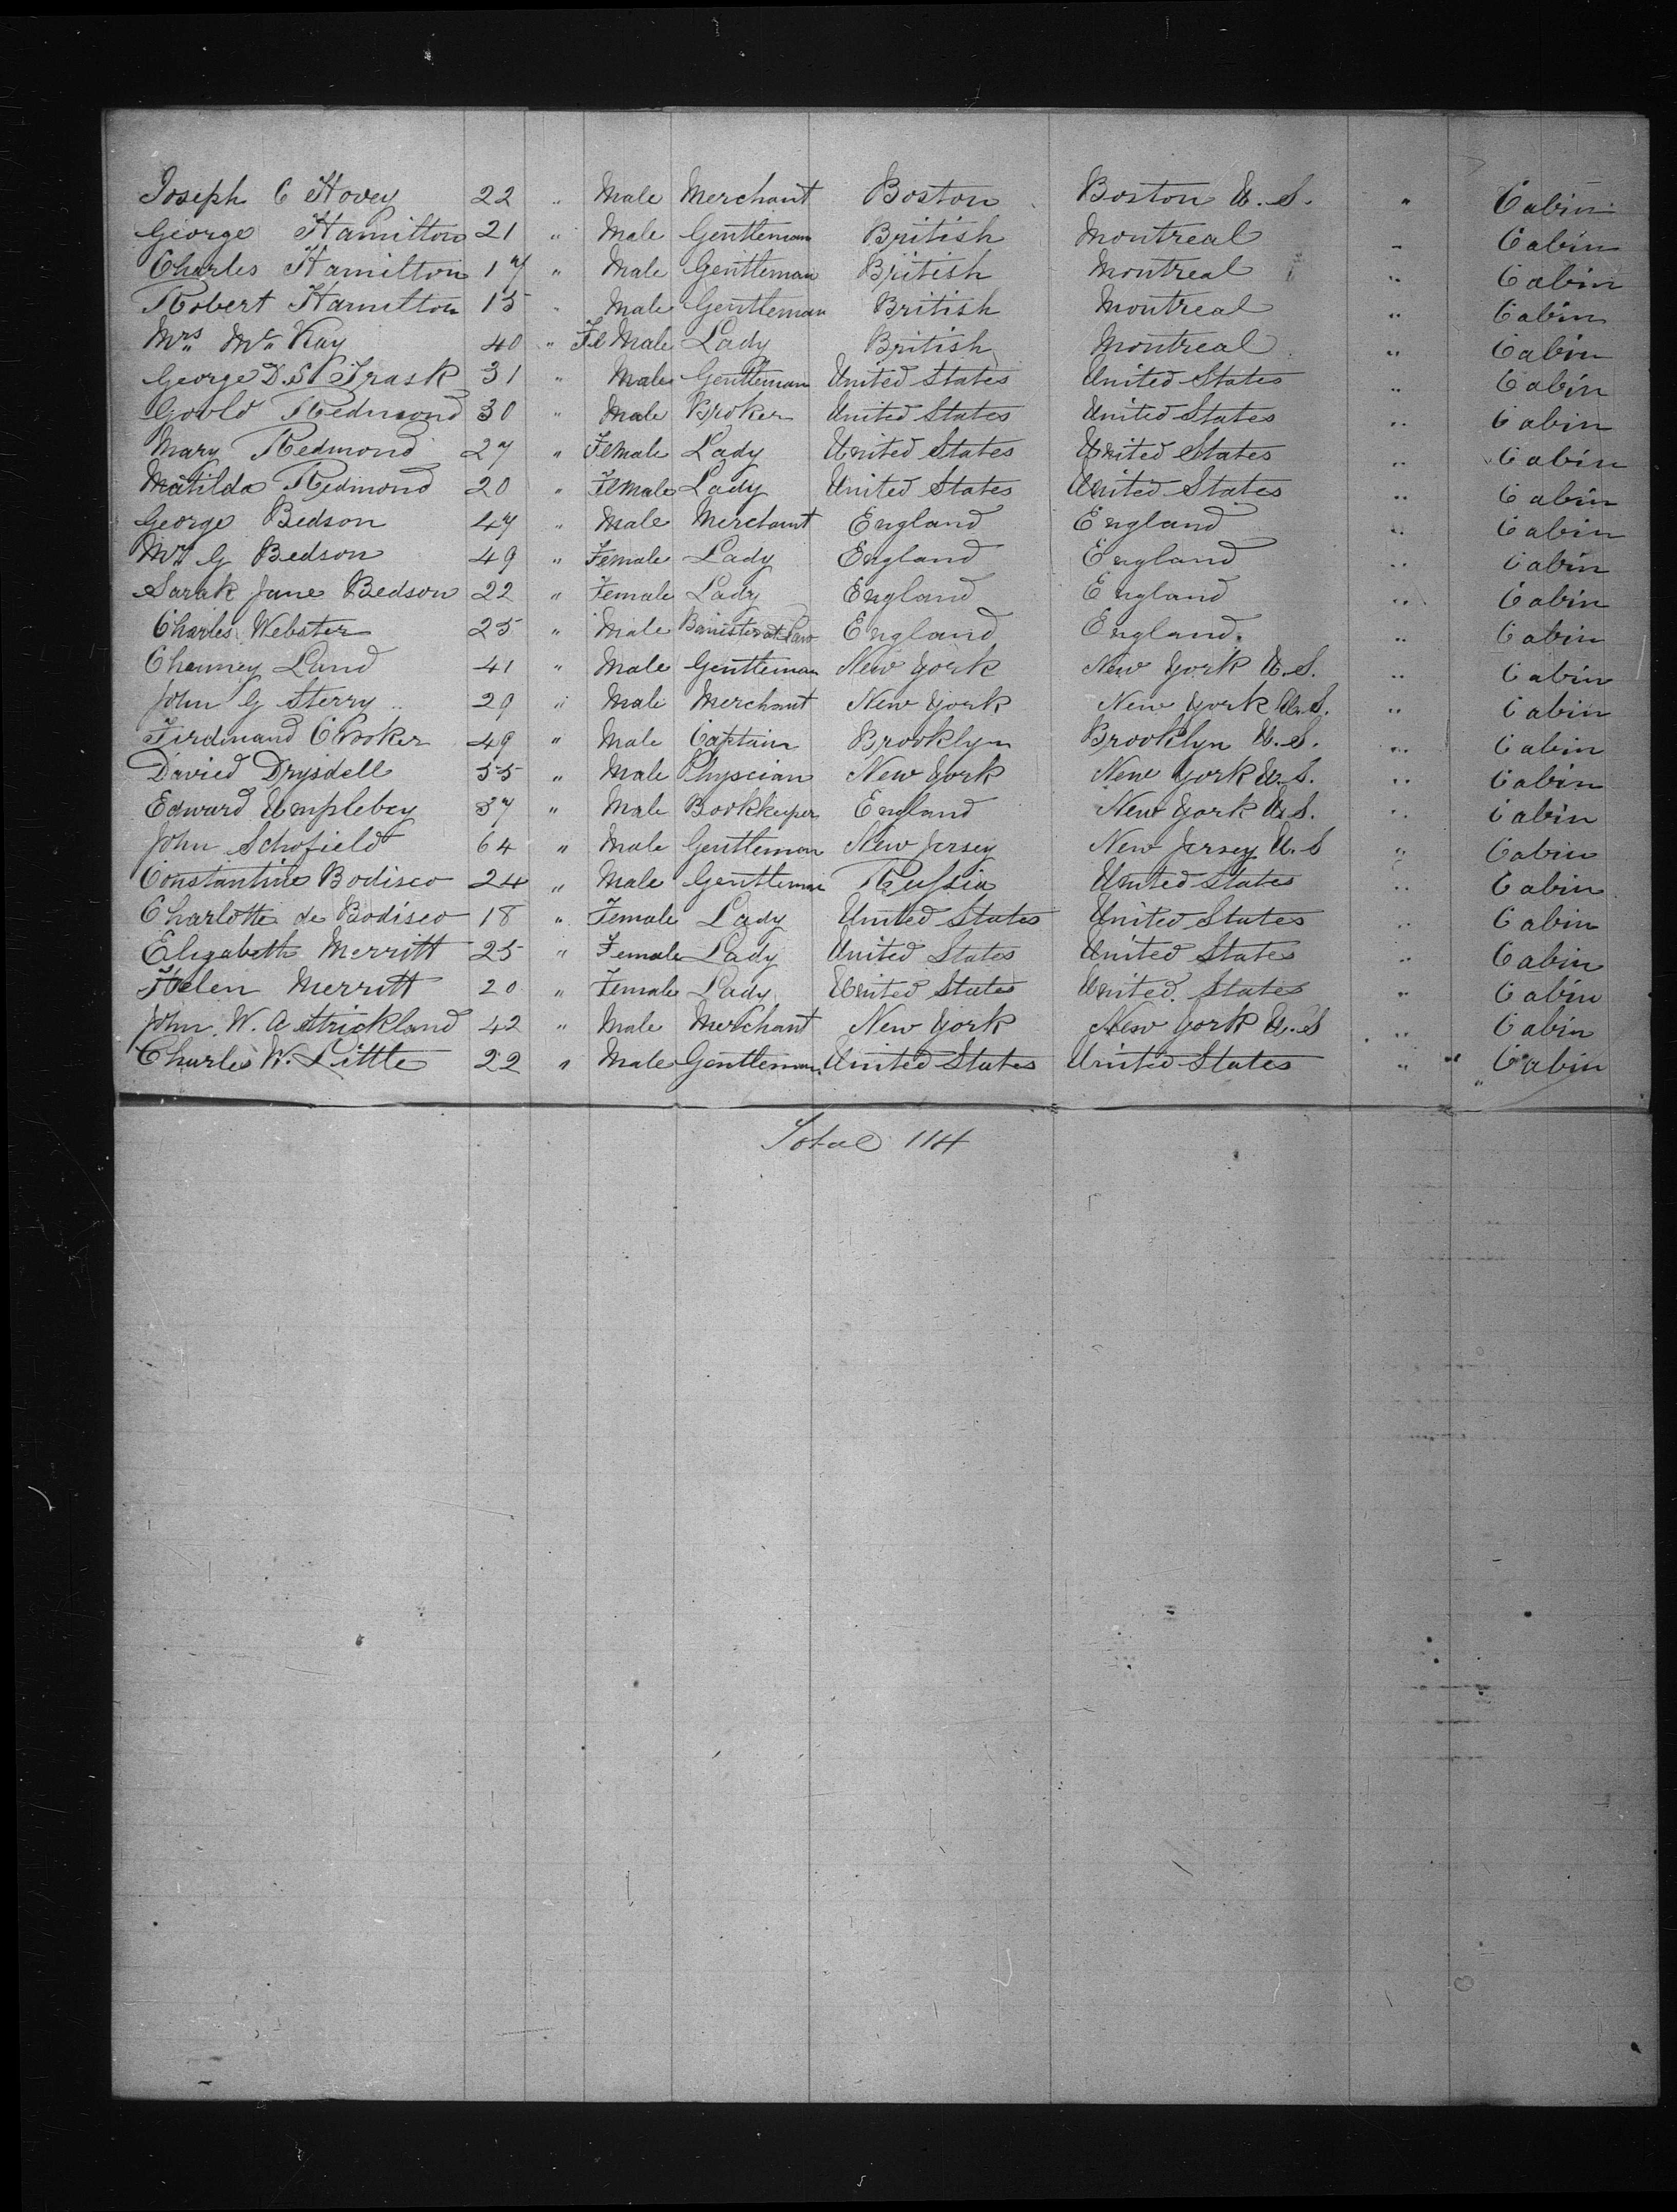 Joseph C Hovey 22 " Male Merchant Boston Boston U.S. " Cabin
George Hamilton 21 " Male Gentleman British Montreal " Cabin
Charles Hamilton 17 " Male Gentleman British Montreal " Cabin
Robert Hamilton 15 " Male Gentleman British Montreal " Cabin
Mrs Mc Kay 40 " Fe Male Lady British Montreal " Cabin
George D. S. Trask 31 " Male Gentleman United States United States " Cabin
Goold Redmond 30 " Male Broker United States United States " Cabin
Mary Redmond 27 " Female Lady United States United States " Cabin
Matilda Redmond 20 " Female Lady United States United States " Cabin
George Bedson 47 " Male Merchant England England " Cabin
Mrs G Bedson 49 " Female Lady England England " Cabin
Sarah Jane Bedson 22 " Female Lady England England " Cabin
Charles Webster 25 " Male Barrister at Law England England. " Cabin
Chenney Land 41 " Male Gentleman New York New York U.S. " Cabin
John G Sterry 29 " Male Merchant New York New York U.S. " Cabin
Ferdinand Crooker 49 " Male Captain Brooklyn Brooklyn U.S. " Cabin
Davied Drysdell 55 " Male Physcian New York New York U.S. " Cabin
Edward Umplebey 37 " Male Bookkeeper England New York U.S. " Cabin
John Schofield 64 " Male Gentleman New Jersey New Jersey U.S " Cabin
Constantine Bodisco 24 " Male Gentleman Russia United States " Cabin
Charlotte de Bodisco 18 " Female Lady United States United States " Cabin
Elizabeth Merritt 25 " Female Lady United States United States " Cabin
Helen Merritt 20 " Female Lady United States United States " Cabin
John W. A Strickland 42 " Male Merchant New York New York U.S " Cabin
Charles W. Little 22 " Male Gentleman United States United States " " Cabin
Total 114